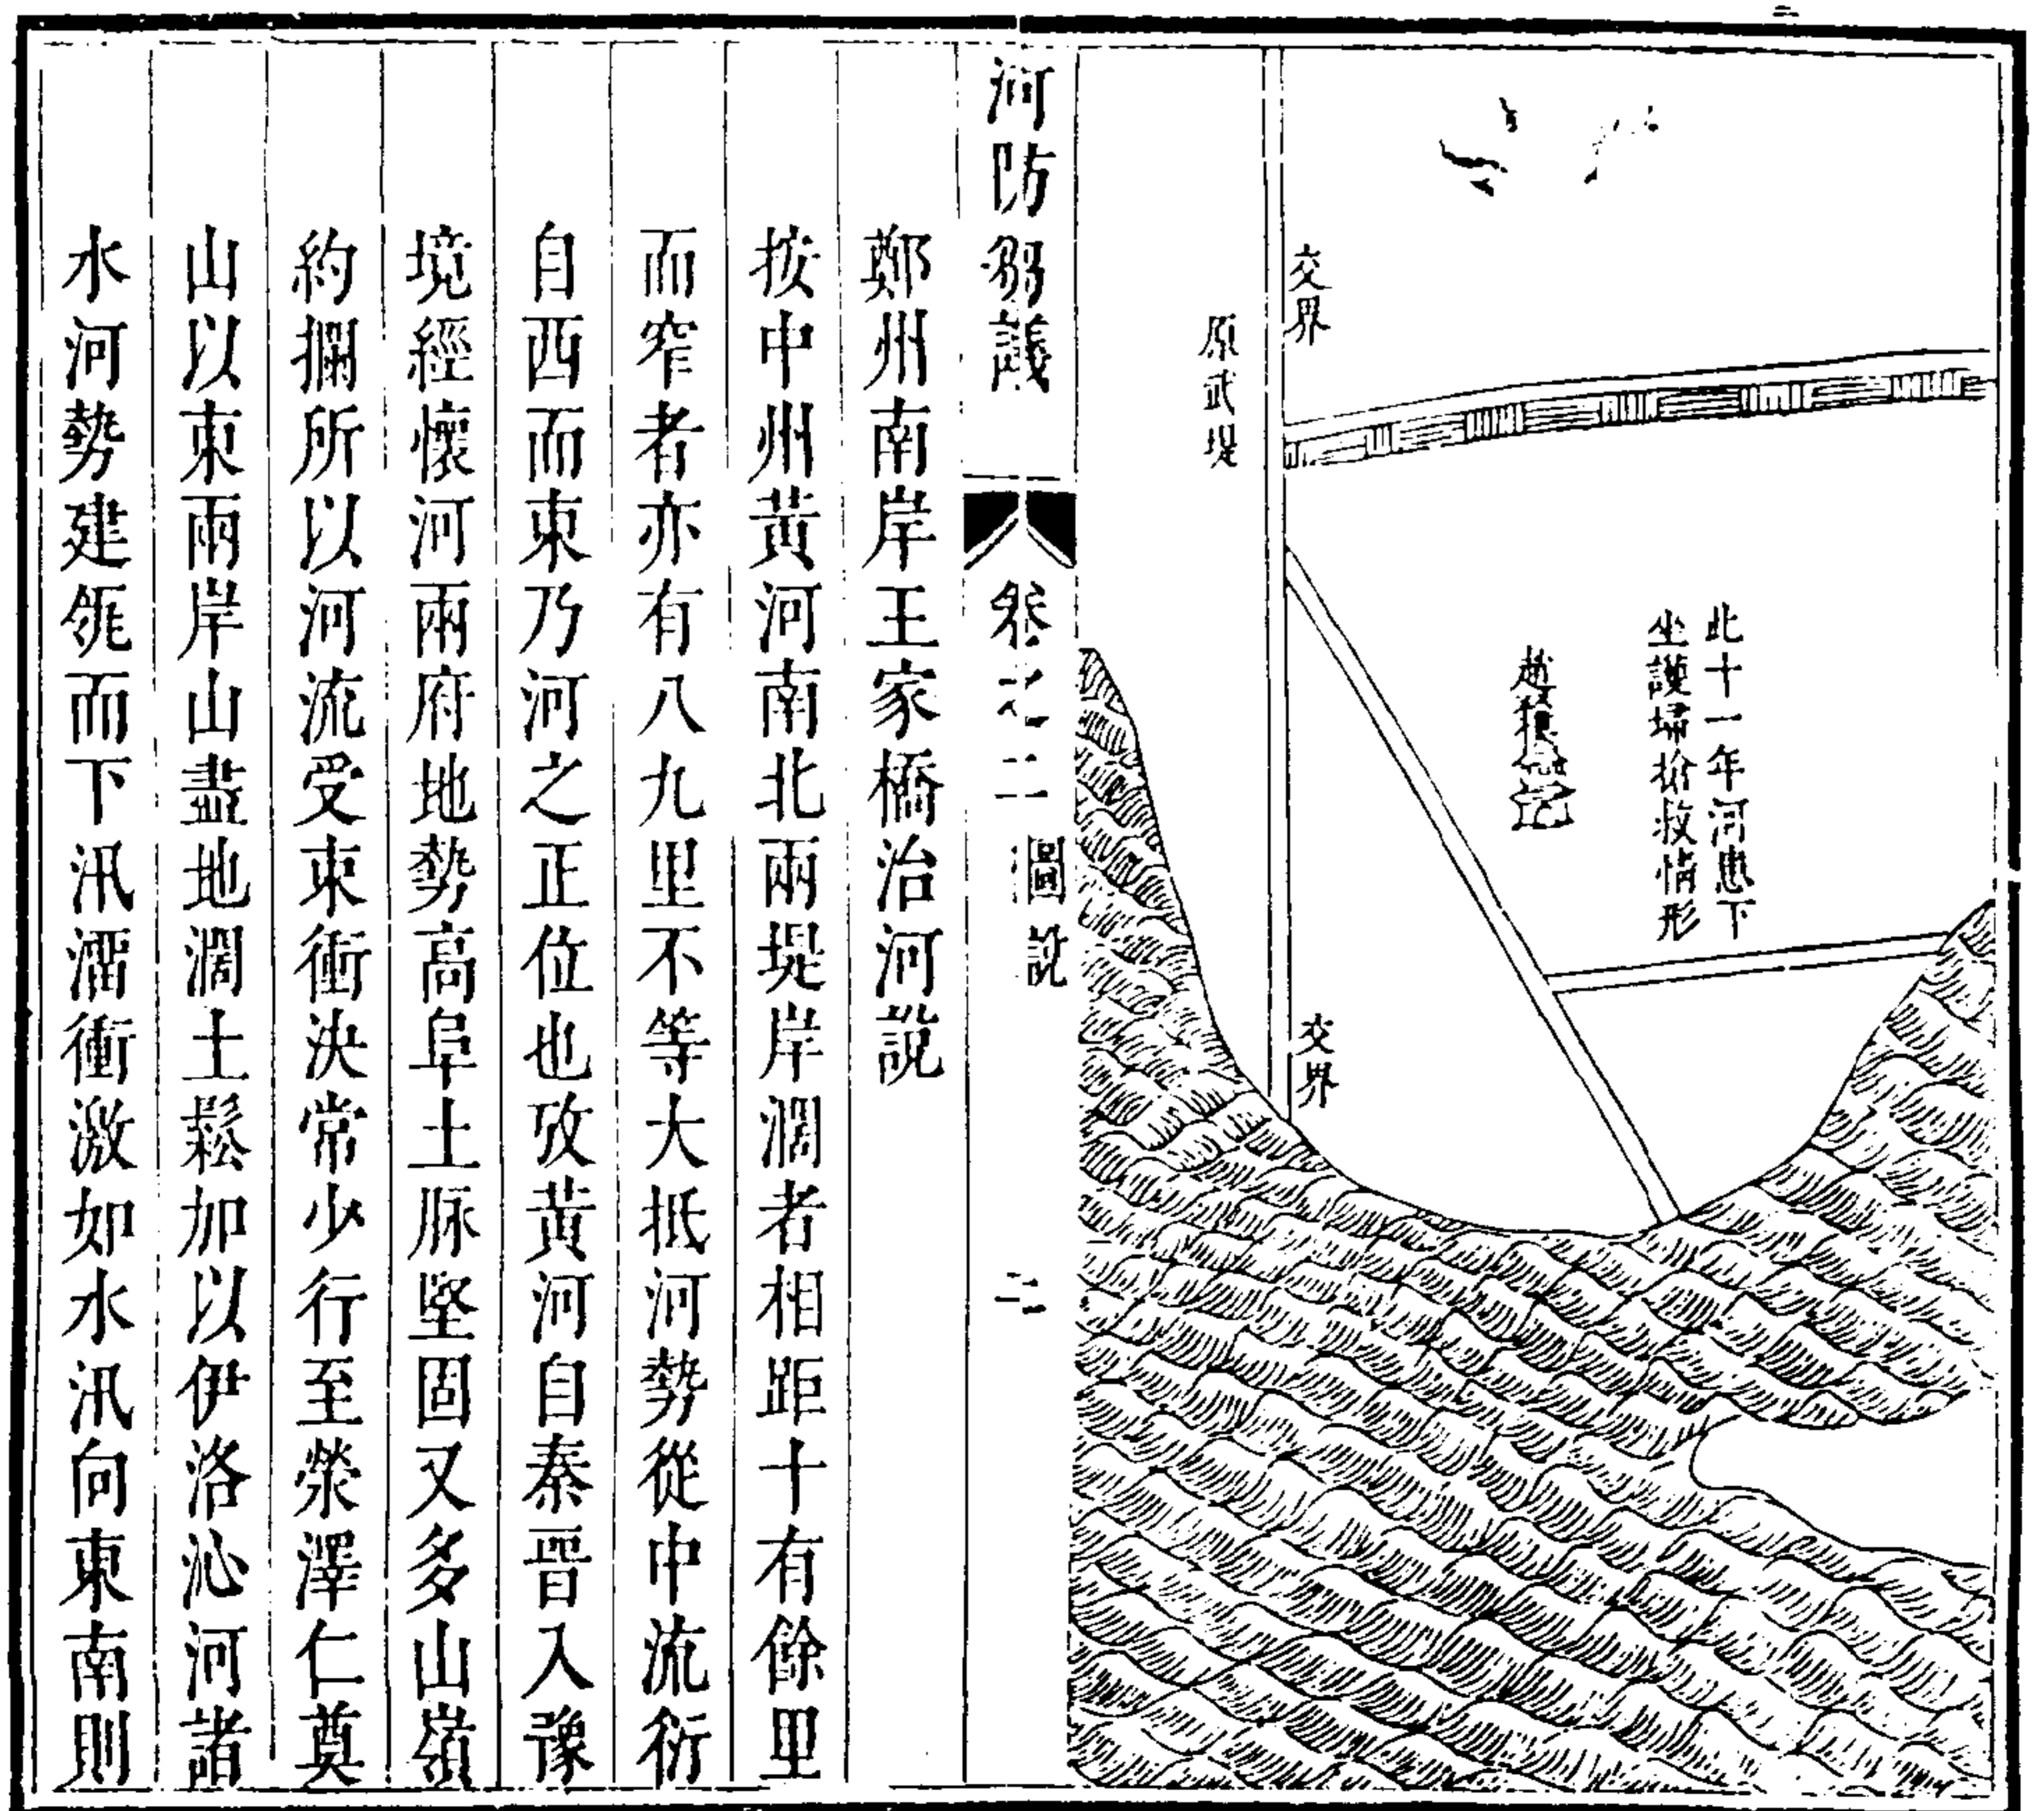 交界
原武堤
此十一年河患下
坐護埽搶救情形
交界
河防芻議
卷之二
圖說
二
鄭州南岸王家橋治河說
按中州黃河南北兩堤岸濶者相距十有餘里
而窄者亦有八九里不等大抵河勢從中流衍
自西而東乃河之正位也攷黃河自秦晉入豫
境經懷河兩府地勢高阜土脈堅固又多山嶺
約攔所以河流受束衝決常少行至滎澤仁奠
山以東兩岸山盡地濶土鬆加以伊洛沁河諸
水河勢建瓴而下汛濡衝激如水汛向東南則